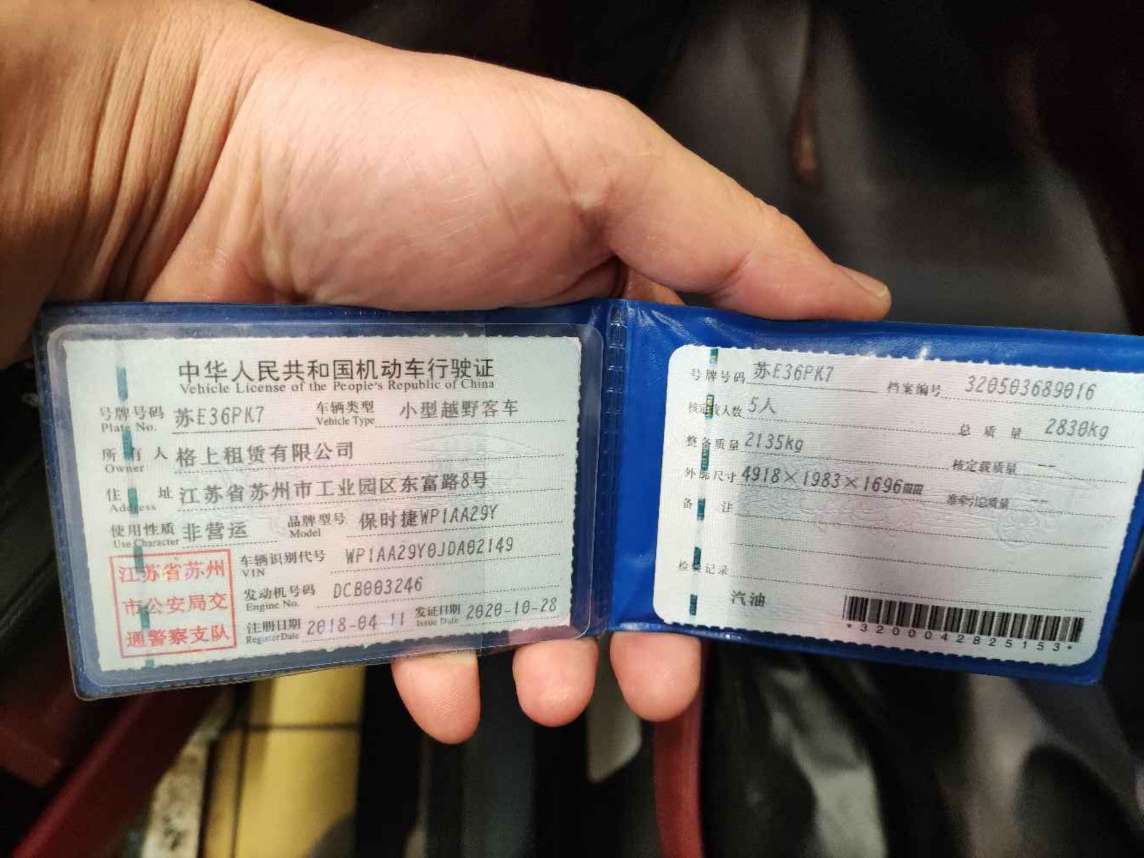 中华人民共和国机动车行驶证
Vehicle License of the People's Republic of China
号牌号码 苏E36PK7 车辆类型 小型越野客车
Plate No. Vehicle Type
所有人 格上租赁有限公司
Owner
住址 江苏省苏州市工业园区东富路8号
Address
使用性质 非营运 品牌型号 保时捷WP1AA29Y
Use Character Model
江苏省苏州
市公安局交
通警察支队
车辆识别代号 WP1AA29Y0JDA02149
VIN
发动机号码 DCB003246
Engine No.
注册日期 2018-04-11 发证日期 2020-10-28
Register Date Issue Date
号牌号码 苏E36PK7 档案编号 320503689016
核定载人数 5人 总质量 2830kg
整备质量 2135kg 核定载质量 --
外廓尺寸 4918×1983×1696mm 准牵引总质量 --
备注
检验记录
汽油
*3200042825153*